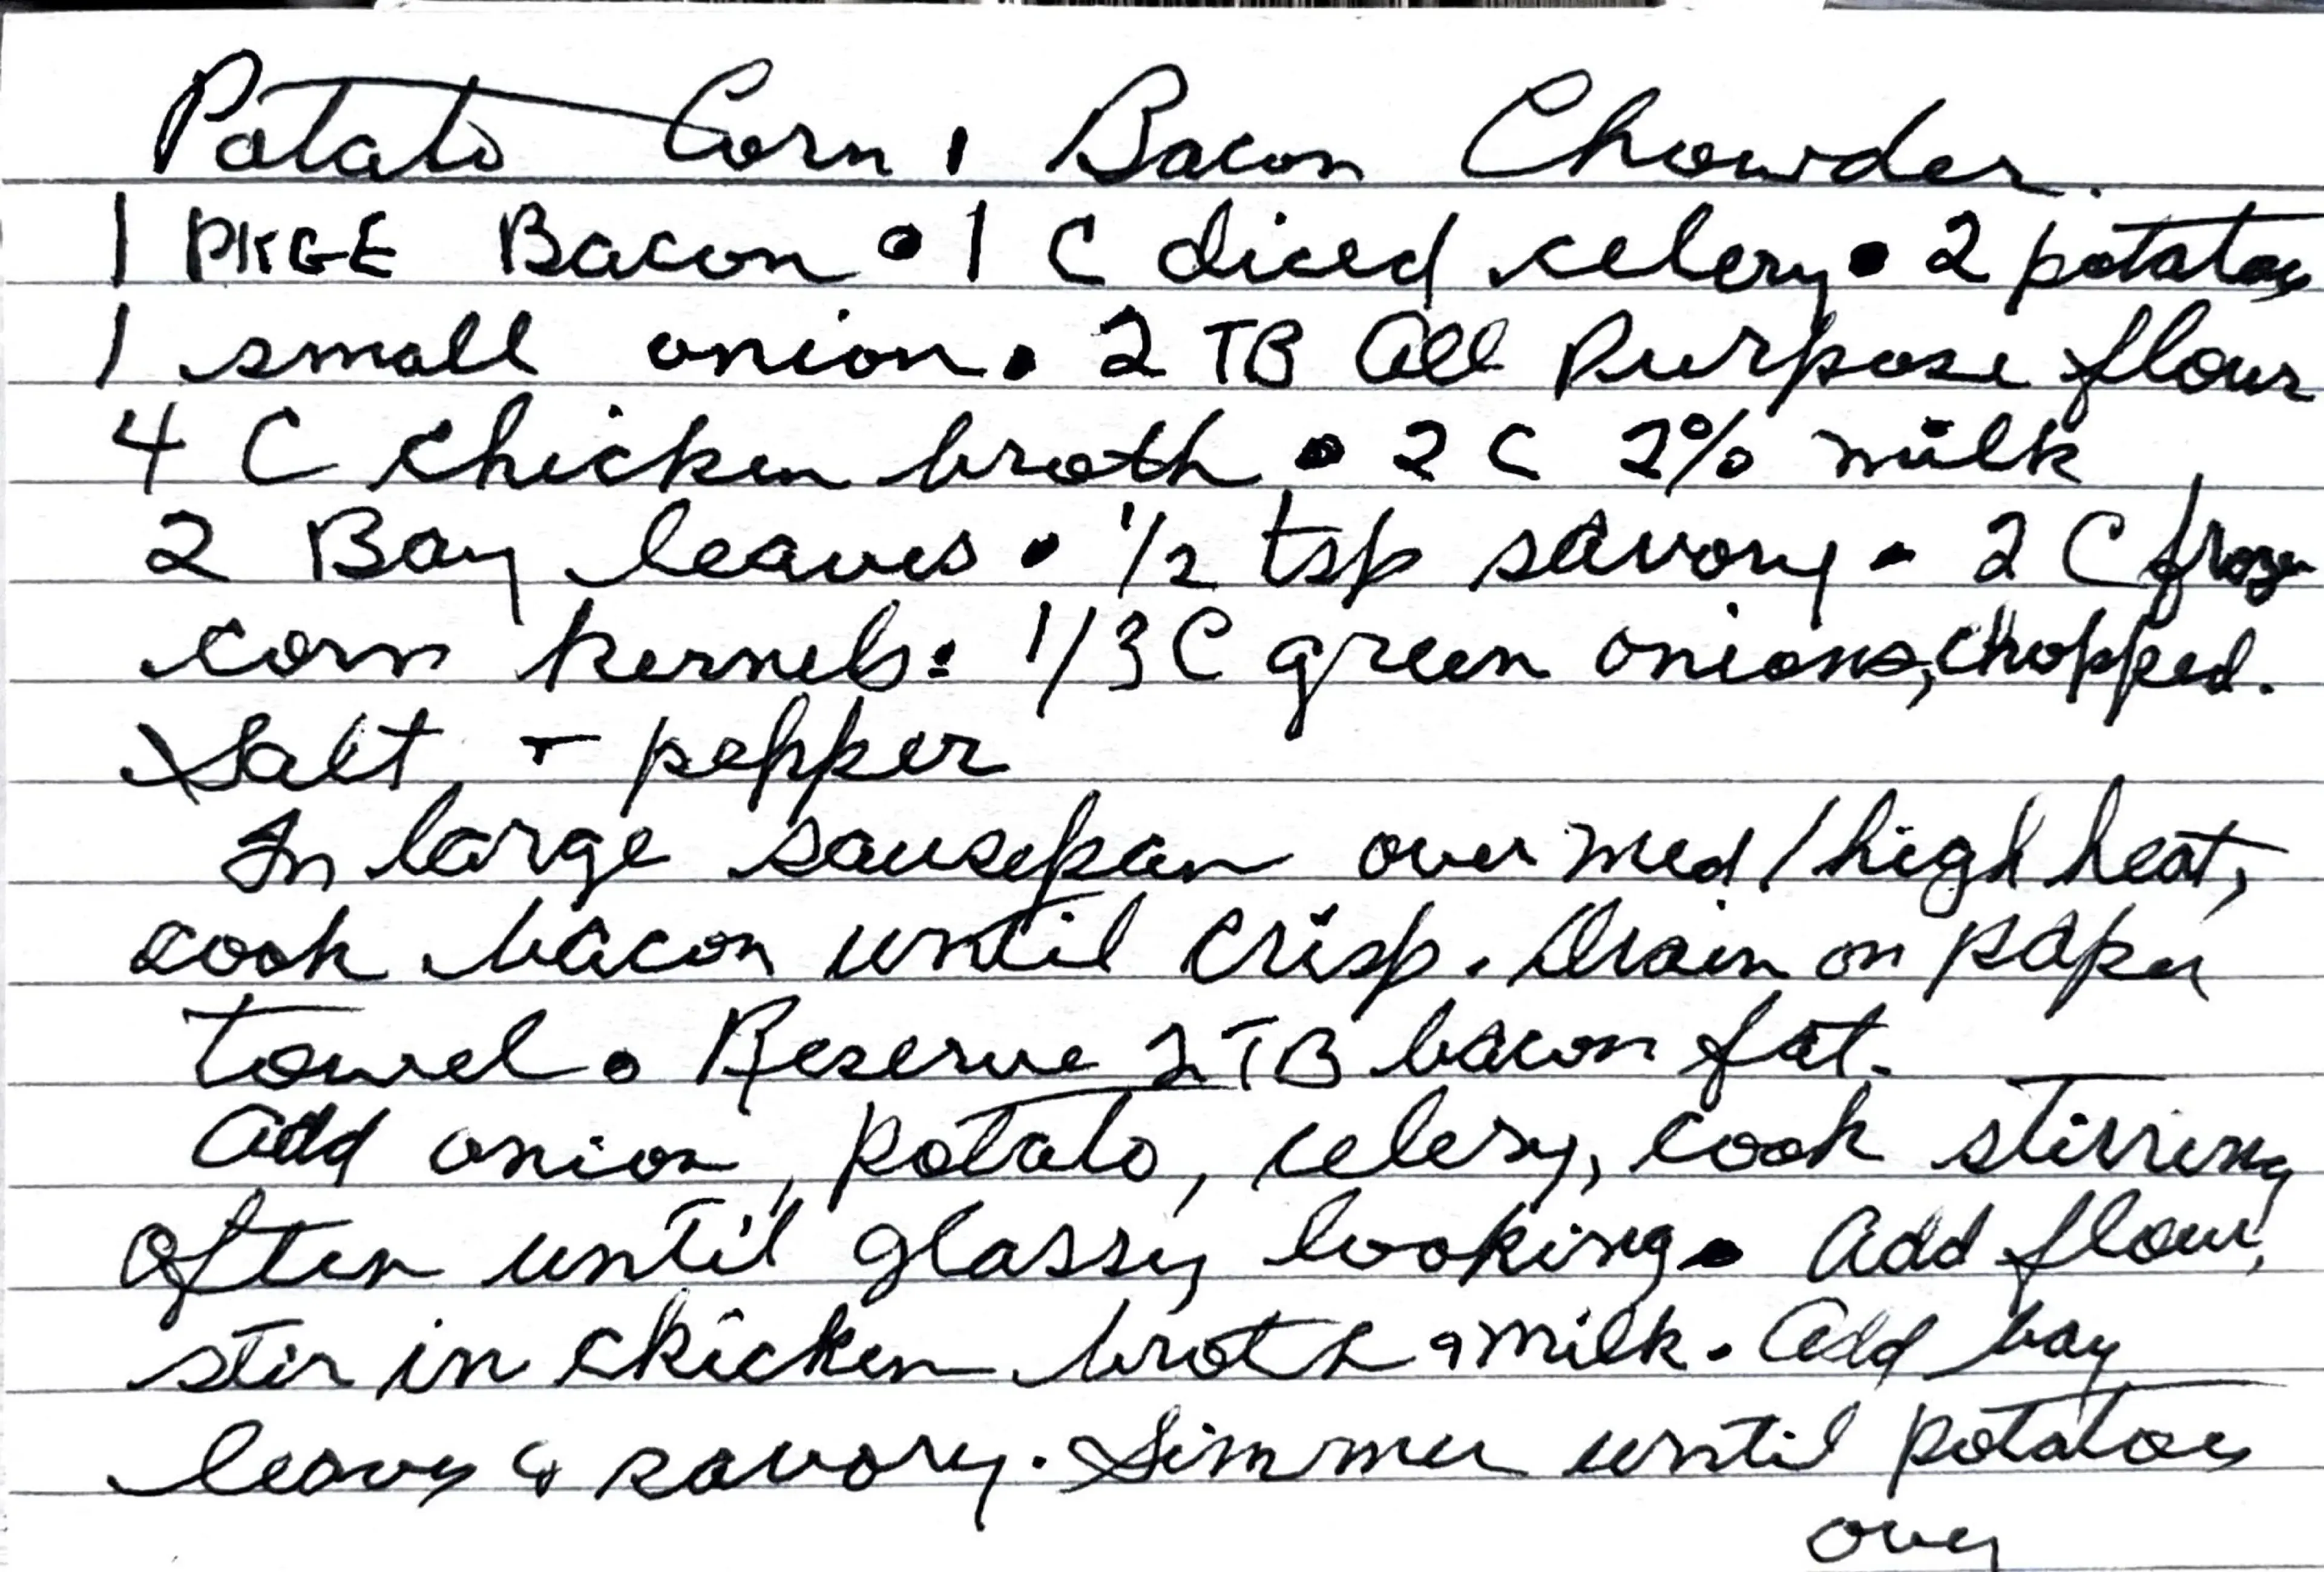 Potato Corn, Bacon Chowder.
1 PKGE Bacon • 1 C diced celery • 2 potatoes
1 small onion • 2 TB All Purpose flour
4 C chicken broth • 2 C 2% milk
2 Bay leaves • 1/2 tsp savory • 2 C frozen
corn kernels • 1/3 C green onions, chopped.
Salt + pepper
In large sausepan over med/high heat,
cook bacon until crisp. Drain on paper
towel • Reserve 2 TB bacon fat.
Add onion, potato, celery, cook stirring
often until glassy looking • Add flour,
stir in chicken broth & milk. Add bay
leaves & savory. Simmer until potatoes
over